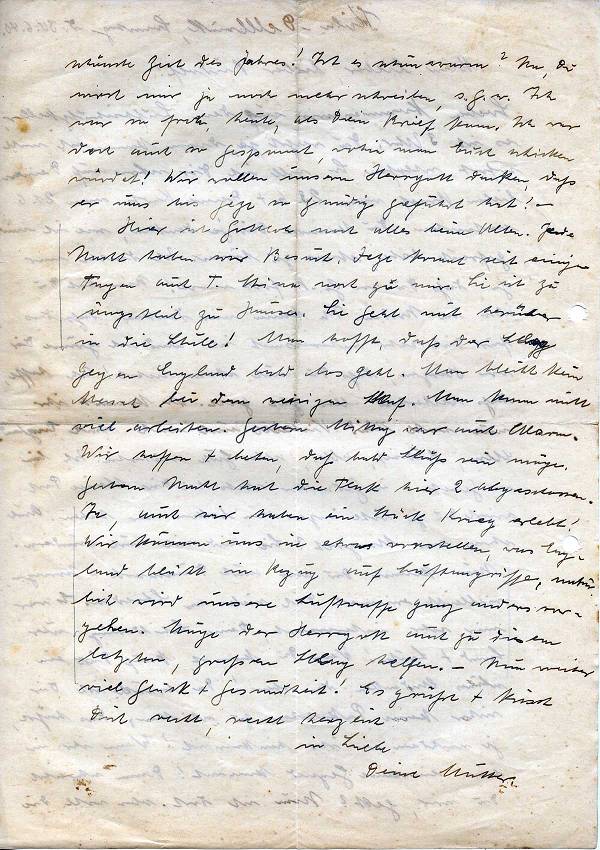 schönste Zeit des Jahres! Ist es schön warm? Na, Du
wirst mir ja noch mehr schreiben, s. G. w. Ich
war so froh, heute, als Dein Brief kam. Ich war
doch auch so gespannt, wohin man Euch schicken
würde! Wir wollen unserm Herrgott danken, daß
er uns bis jetzt so gnädig geführt hat! –
Hier ist Gottlob noch alles beim Alten. Jede
Nacht haben wir Besuch. Jetzt kommt seit einigen
Tagen auch T. Mina noch zu mir. Sie ist zu
ängstlich zu Hause. Sie geht mit herüber
in die Schule! Man hofft, daß der Schlag
gegen England bald los geht. Man bleibt kein
Mensch bei dem wenigen Schlaf. Man kann nicht
viel arbeiten. Gestern Mittag war auch Alarm.
Wir hoffen + beten, daß bald Schluß sein möge.
Gestern Nacht hat die Flak hier 2 abgeschossen.
Ja, auch wir haben ein Stück Krieg erlebt!
Wir können uns in etwas vorstellen, was Eng-
land blüht in Bezug auf Luftangriffe, natür-
lich wird unsere Luftwaffe ganz anders vor-
gehen. Möge der Herrgott auch zu diesem
letzten, großen Schlag helfen. – Nun weiter
viel Glück + Gesundheit! Es grüßt + küsst
Dich recht, recht herzlich
in Liebe
Deine Mutter.